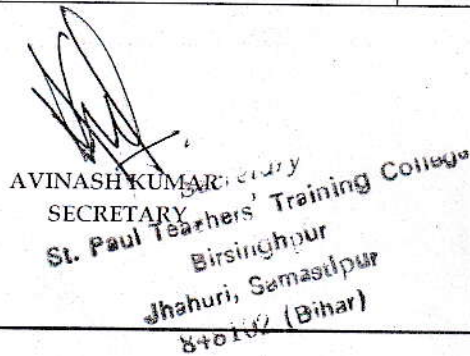 AVINASH KUMAR
SECRETARY
Secretary
St. Paul Teachers' Training College
Birsinghpur
Jhahuri, Samastipur
848102 (Bihar)